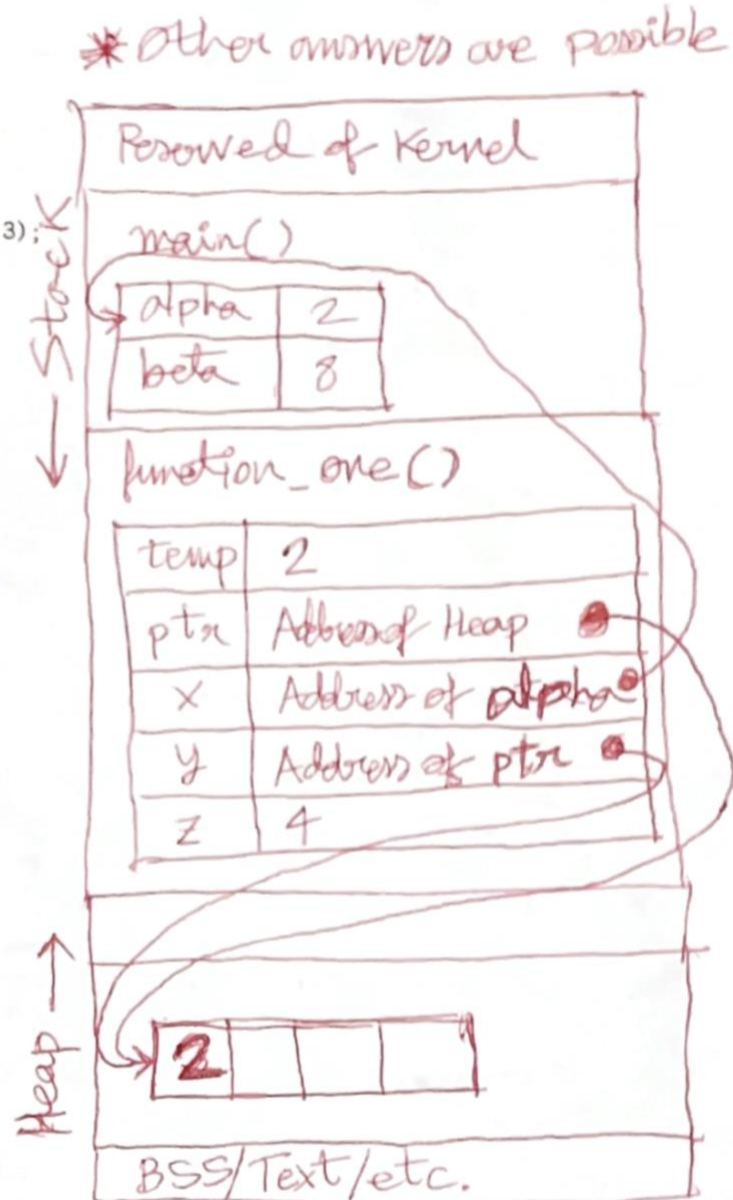 * Other answers are possible
Reserved of Kernel
3);
← Stack
main()
alpha 2
beta 8
function_one()
temp 2
ptr Address of Heap
x Address of alpha
y Address of ptr
z 4
Heap →
2
BSS/Text/etc.